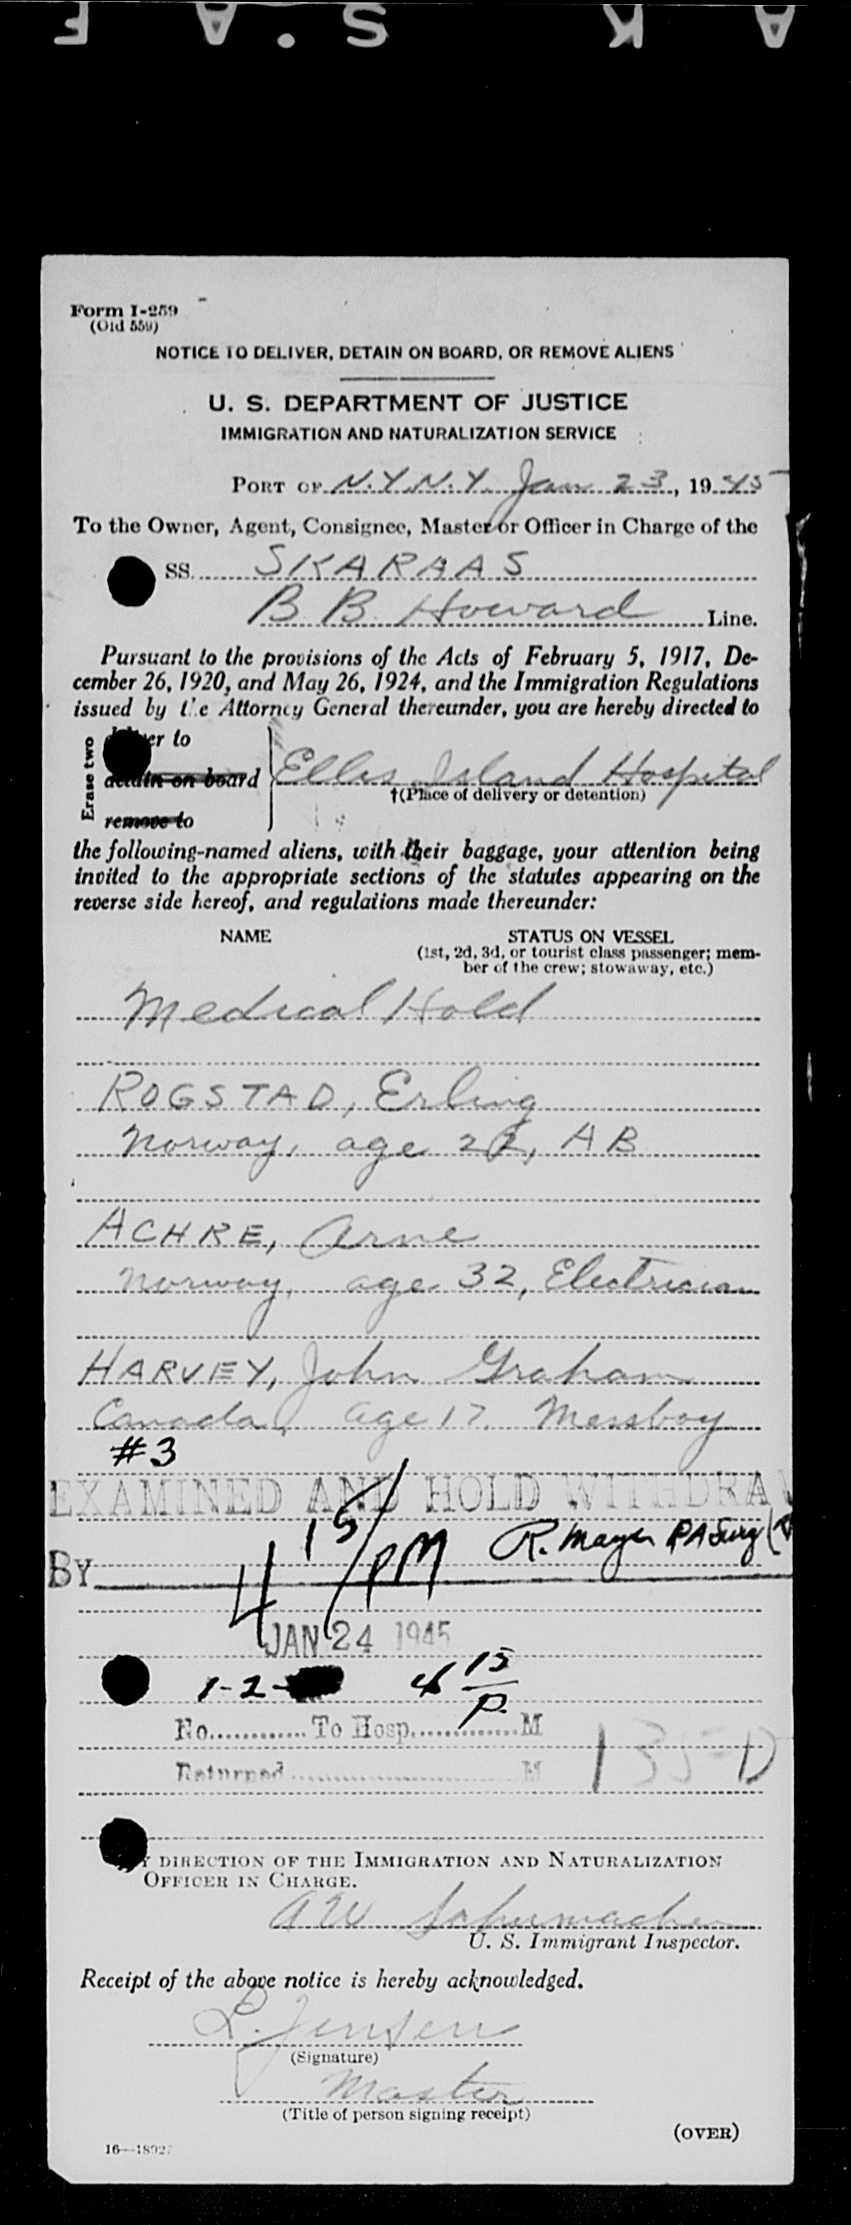 Form I-259
(Old 559)
NOTICE TO DELIVER, DETAIN ON BOARD, OR REMOVE ALIENS
U. S. DEPARTMENT OF JUSTICE
IMMIGRATION AND NATURALIZATION SERVICE
PORT OF N.Y.N.Y. Jan 23, 1945
To the Owner, Agent, Consignee, Master or Officer in Charge of the
SS. SKARAAS
B B Howard Line.
Pursuant to the provisions of the Acts of February 5, 1917, De-
cember 26, 1920, and May 26, 1924, and the Immigration Regulations
issued by the Attorney General thereunder, you are hereby directed to
Erase two
deliver to
detain on board Ellis Island Hospital
†(Place of delivery or detention)
remove to
the following-named aliens, with their baggage, your attention being
invited to the appropriate sections of the statutes appearing on the
reverse side hereof, and regulations made thereunder:
NAME STATUS ON VESSEL
(1st, 2d, 3d, or tourist class passenger; mem-
ber of the crew; stowaway, etc.)
Medical Hold
ROGSTAD, Erling
Norway, age 22, AB
ACHRE, Arne
Norway, age 32, Electrician
HARVEY, John Graham
Canada, age 17, Messboy
#3
EXAMINED AND HOLD WITHDRA
4 15/PM R. Mayer PA Surg
BY
JAN 24 1945
1-2- 4 15 P.
No. To Hosp. M
Returned M
135-D
BY DIRECTION OF THE IMMIGRATION AND NATURALIZATION
OFFICER IN CHARGE.
AW Schumacher
U. S. Immigrant Inspector.
Receipt of the above notice is hereby acknowledged.
L. Jensen
(Signature)
Master
(Title of person signing receipt)
(OVER)